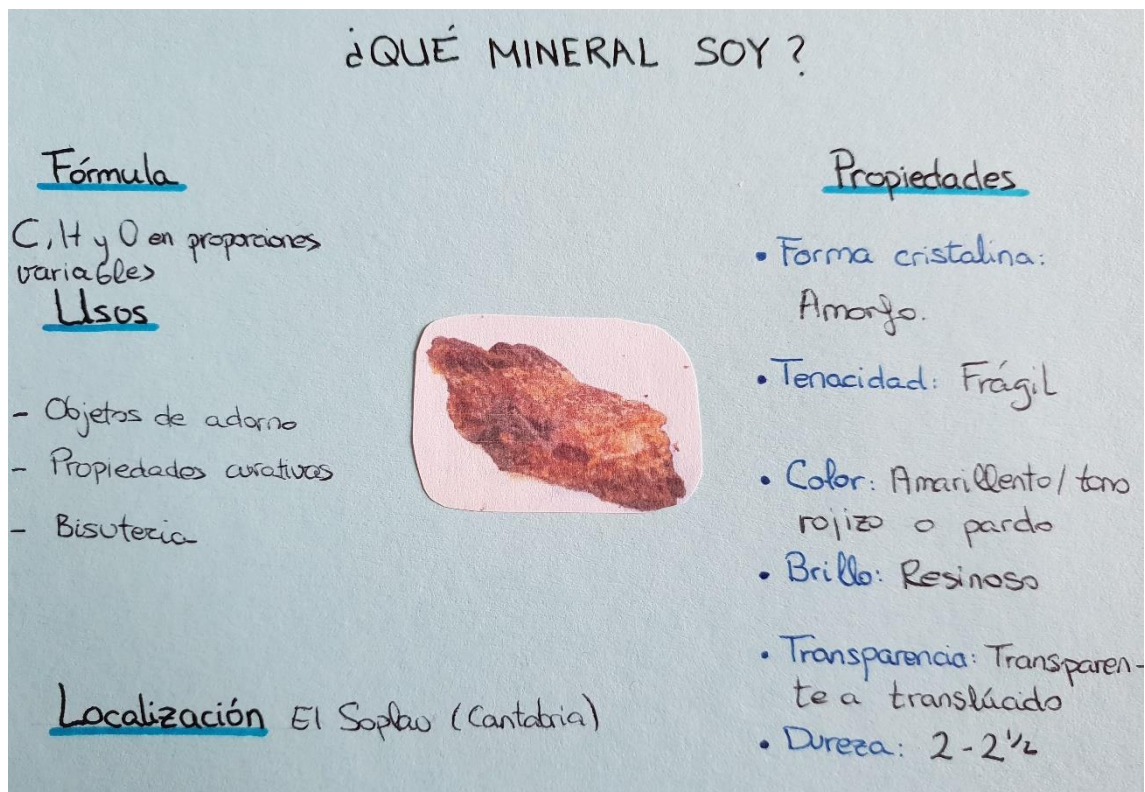 ¿QUÉ MINERAL SOY?
Fórmula
C, H y O en proporciones
variables
Usos
- Objetos de adorno
- Propiedades curativas
- Bisuteria
Localización El Soplao (Cantabria)
Propiedades
• Forma cristalina:
Amorfo.
• Tenacidad: Frágil
• Color: Amarillento/tono
rojizo o pardo
• Brillo: Resinoso
• Transparencia: Transparen-
te a translúcido
• Dureza: 2-2 1/2